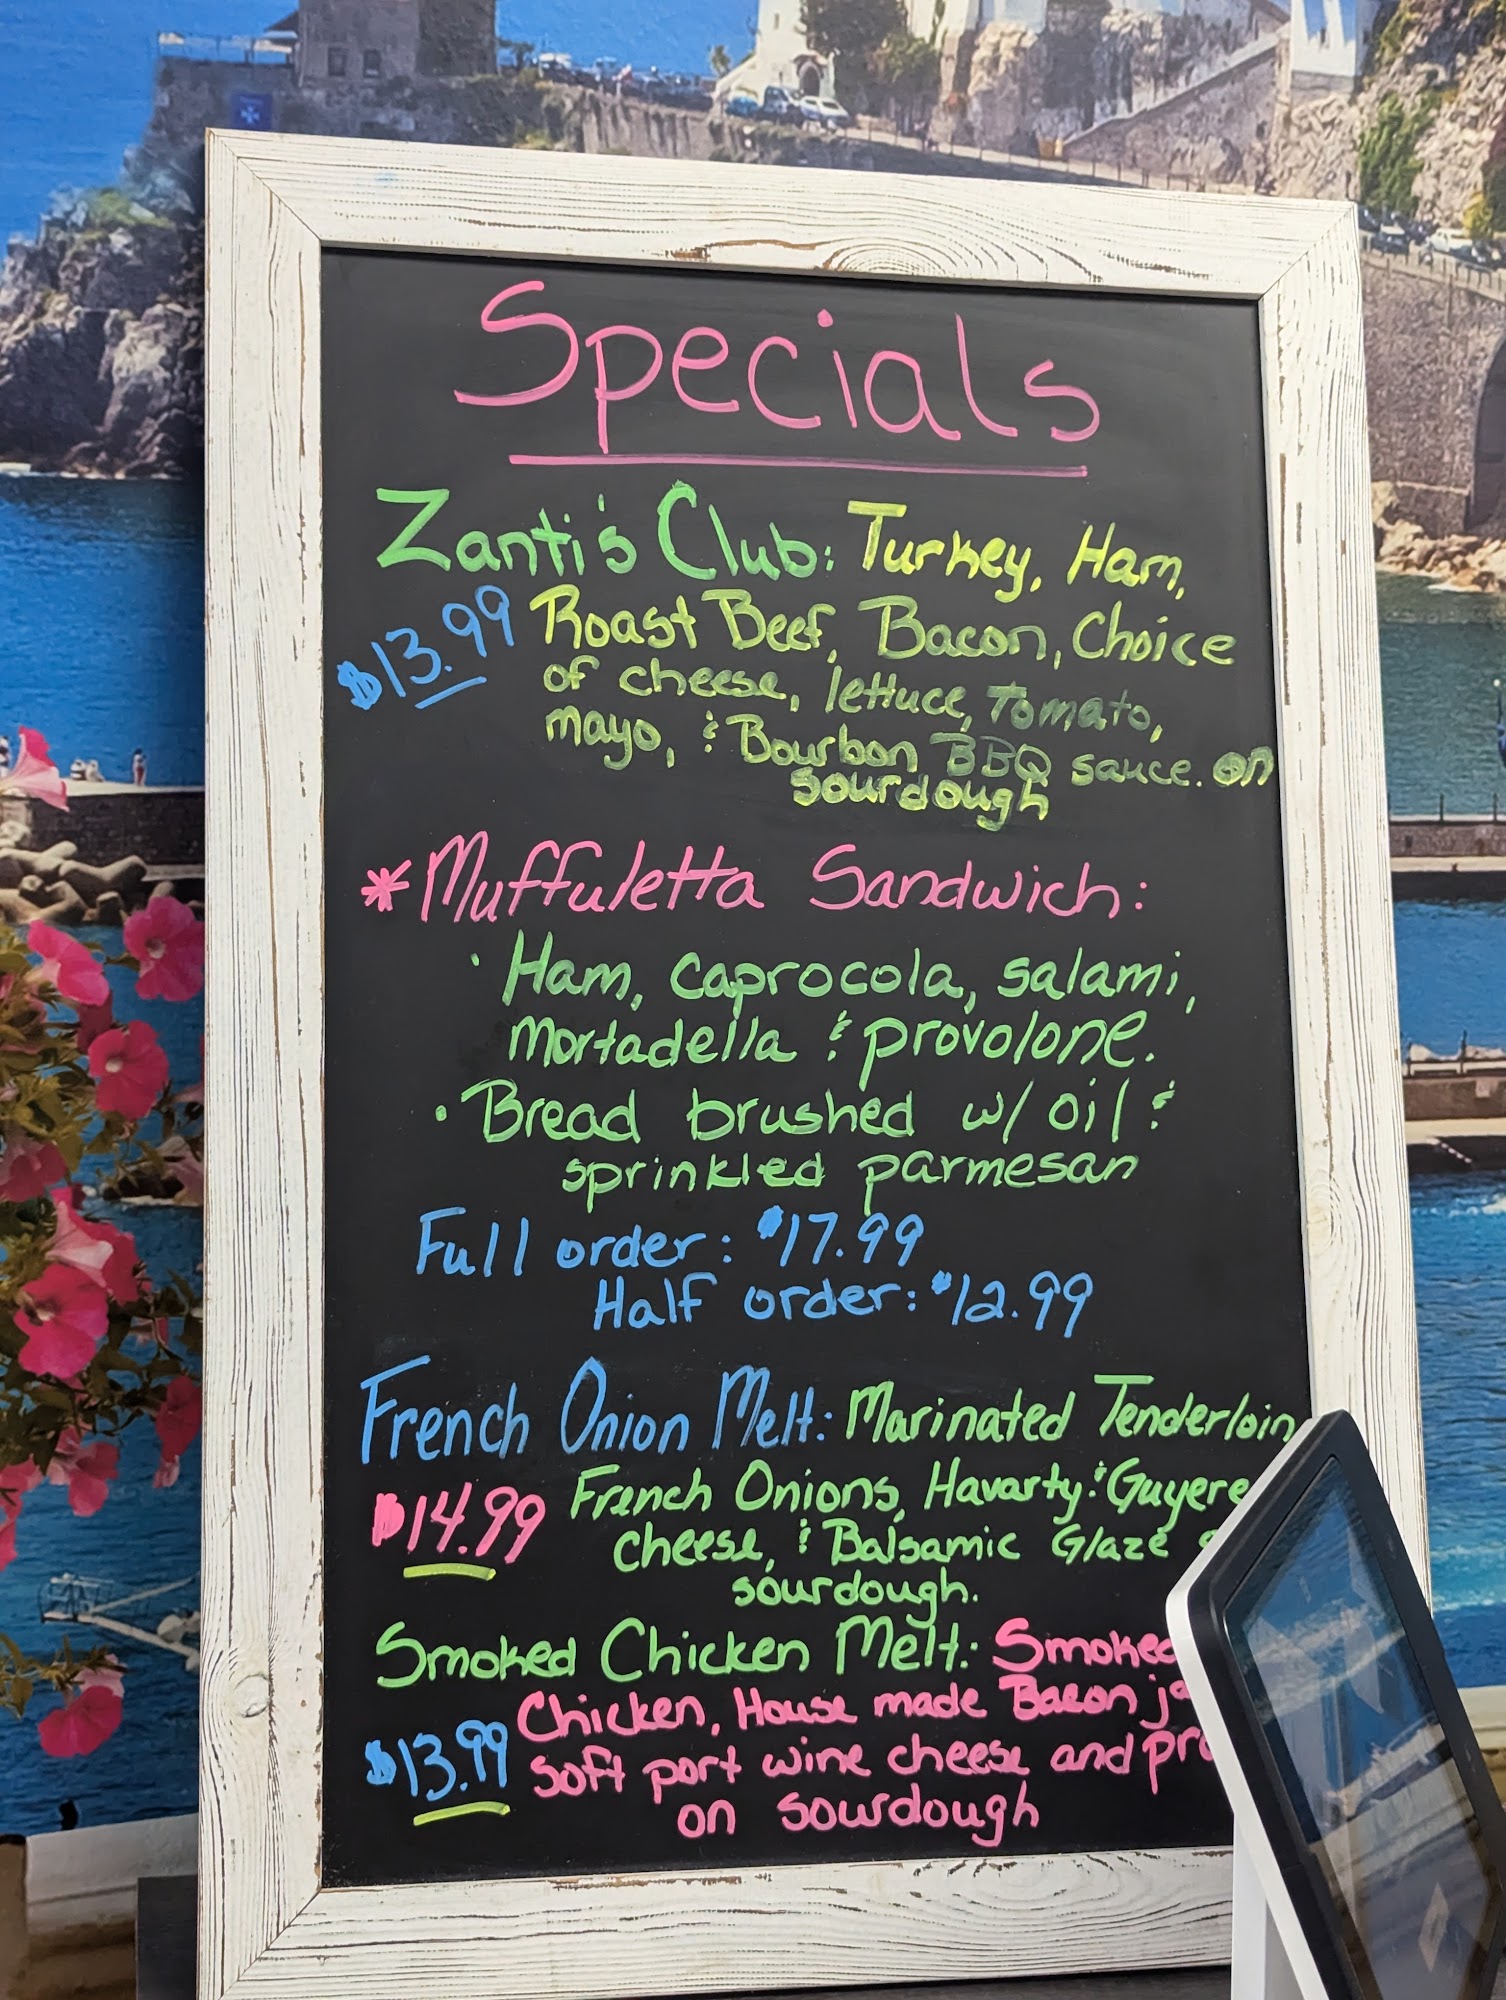 Specials
Zanti's Club: Turkey, Ham,
$13.99 Roast Beef, Bacon, Choice
of cheese, lettuce, Tomato,
mayo, & Bourbon BBQ sauce. on
sourdough
*Muffuletta Sandwich:
• Ham, caprocola, salami,
mortadella & provolone.
• Bread brushed w/ oil &
sprinkled parmesan
Full order: $17.99
Half order: $12.99
French Onion Melt: Marinated Tenderloin
$14.99 French Onions, Havarty & Guyere
cheese, & Balsamic Glaze
sourdough.
Smoked Chicken Melt: Smoked
Chicken, House made Bacon
$13.99 soft port wine cheese and
on sourdough